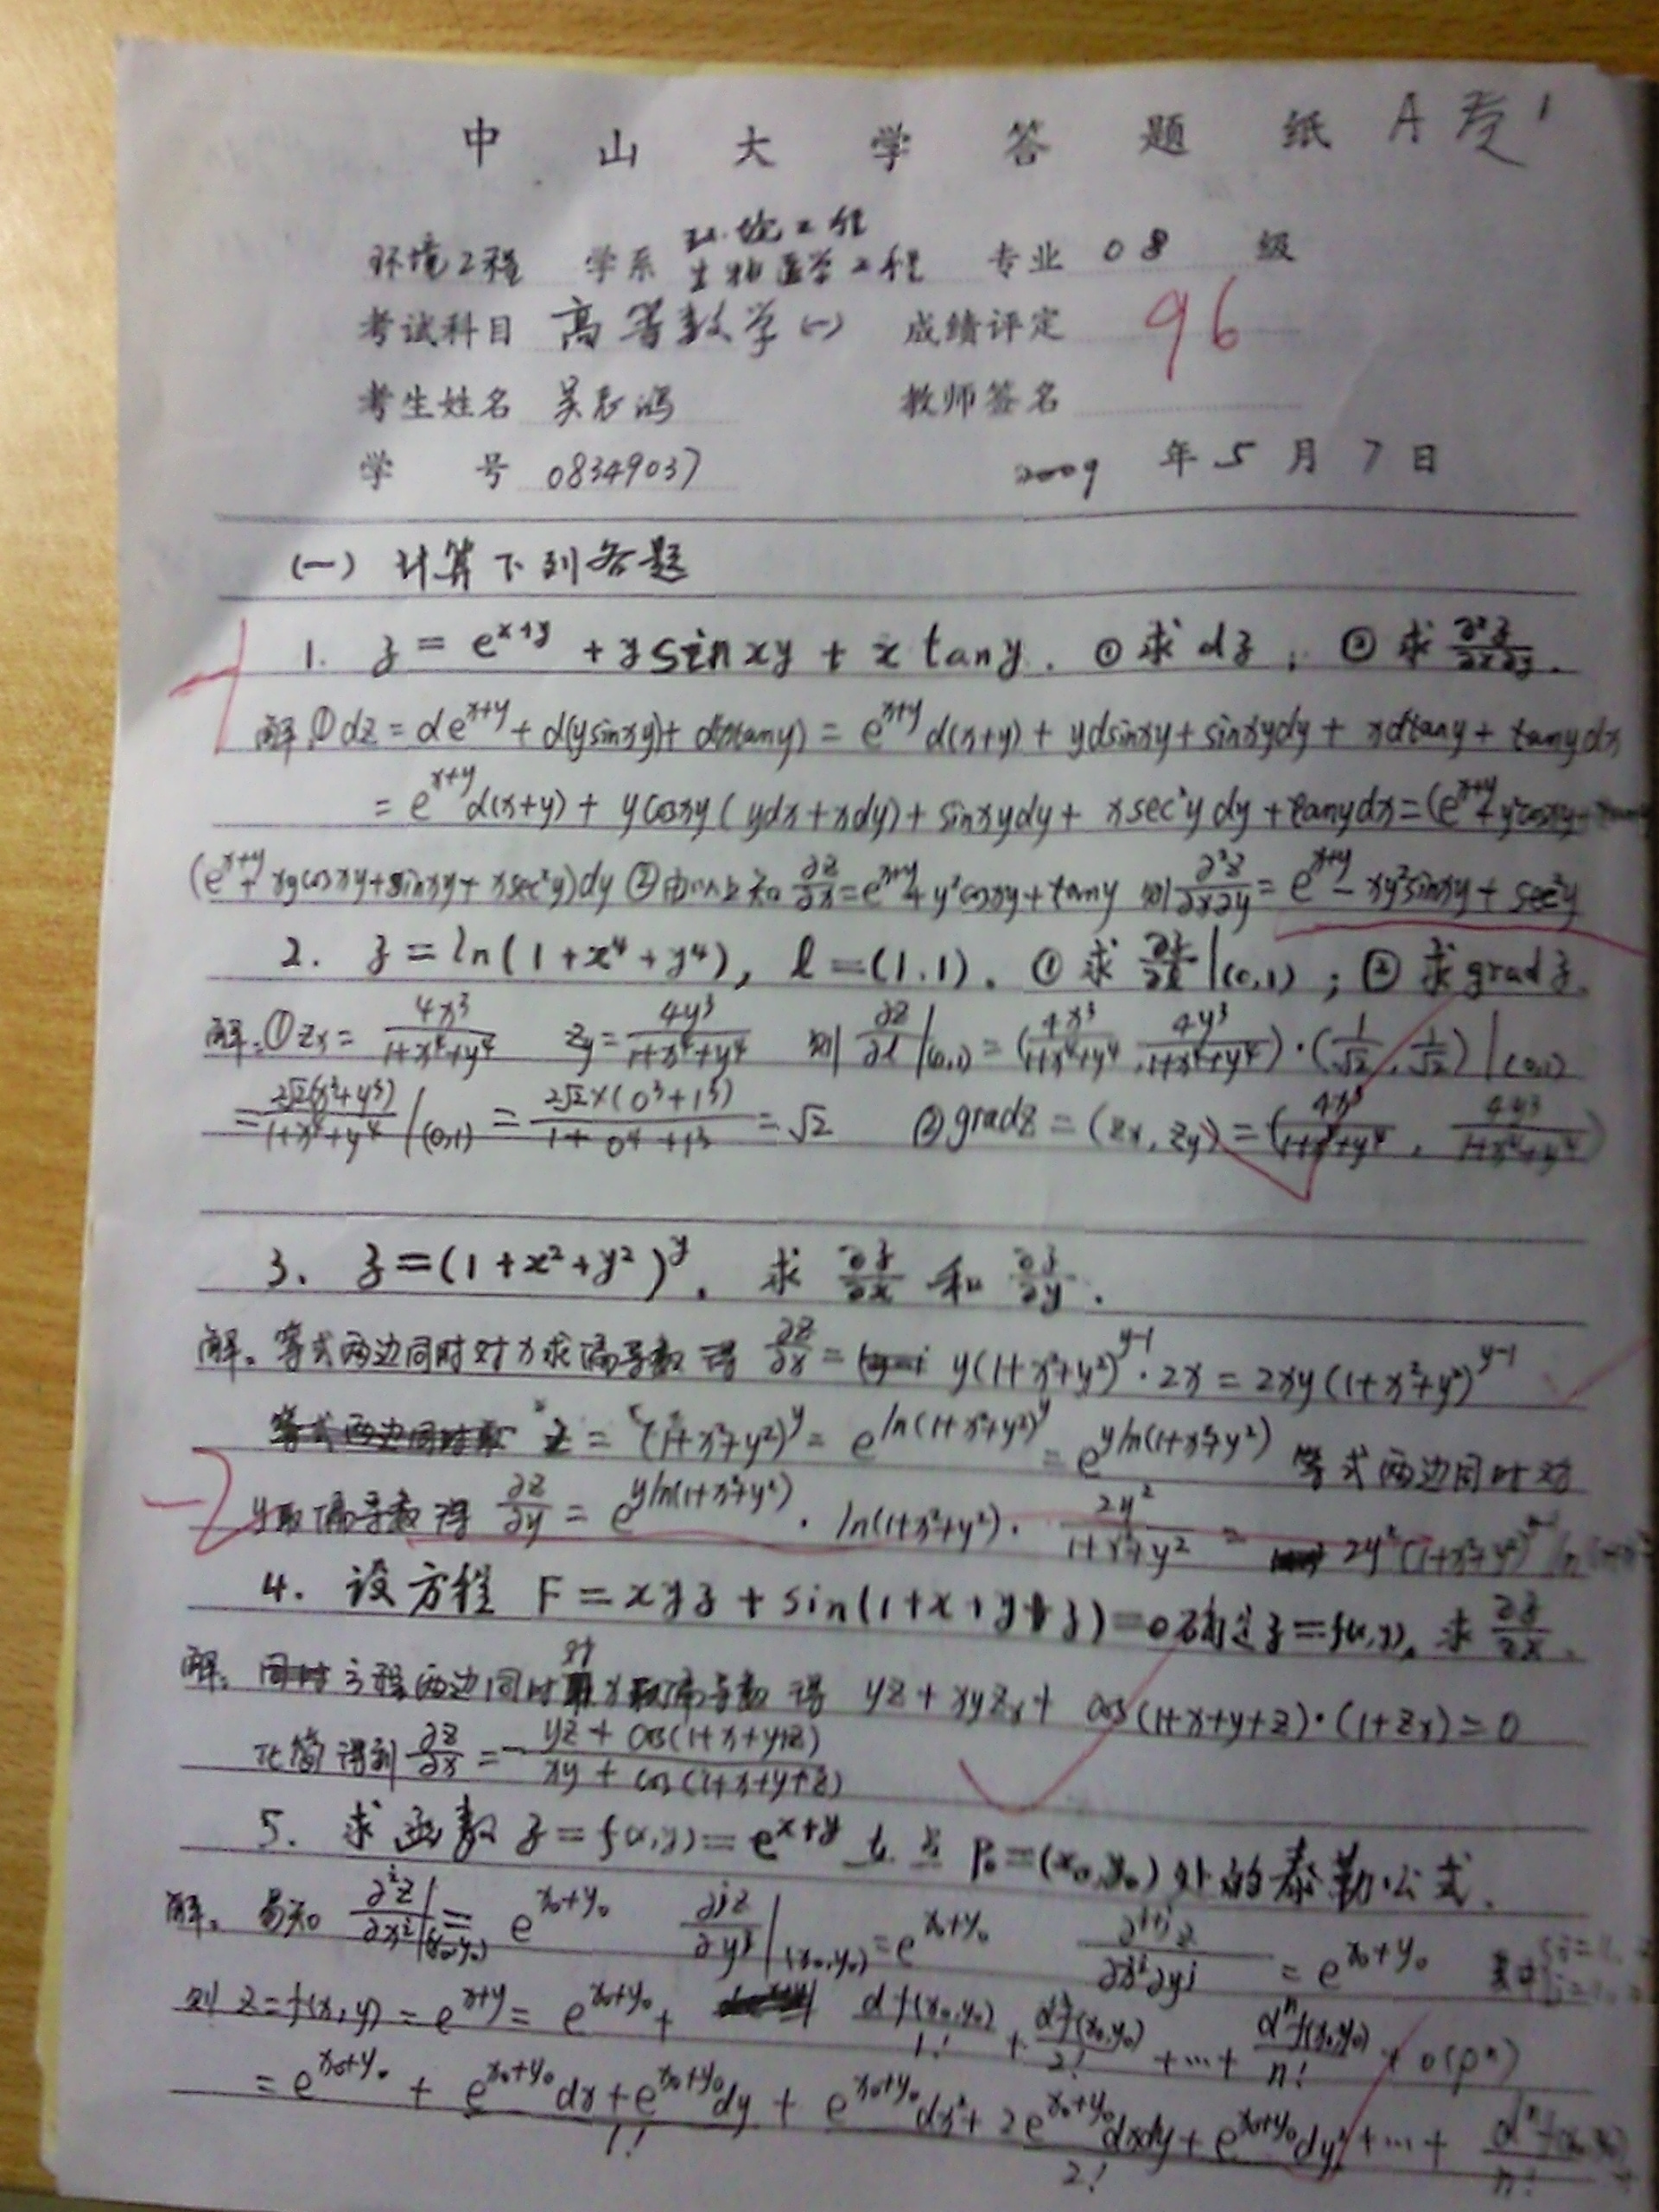 中山大学答题纸 A卷 1
环境工程 学系 生物医学工程 专业 08 级
考试科目 高等数学(一) 成绩评定 96
考生姓名 吴 教师签名
学 号 08349037 2009 年 5 月 7 日
(一) 计算下列各题
-1
1. z = e^{x+y} + y sin xy + x tan y. ① 求 dz; ② 求 ∂²z/∂x∂y.
解:① dz = de^{x+y} + d(y sin xy) + d(x tan y) = e^{x+y} d(x+y) + y d sin xy + sin xy dy + x d tan y + tan y dx
= e^{x+y} d(x+y) + y cos xy (y dx + x dy) + sin xy dy + x sec² y dy + tan y dx = (e^{x+y} + y² cos xy +
(e^{x+y} + xy cos xy + sin xy + x sec² y) dy ② 由以上知 ∂z/∂x = e^{x+y} + y² cos xy + tan y 则 ∂²z/∂x∂y = e^{x+y} - xy² sin xy + sec² y
2. z = ln(1+x⁴+y⁴), l = (1.1). ① 求 ∂z/∂l|(0,1); ② 求 grad z.
解:① zx = 4x³/(1+x⁴+y⁴) zy = 4y³/(1+x⁴+y⁴) 则 ∂z/∂l|(0,1) = (4x³/(1+x⁴+y⁴), 4y³/(1+x⁴+y⁴))·(1/√2, 1/√2)|(0,1)
= 2√2(x³+y³)/(1+x⁴+y⁴)|(0,1) = 2√2×(0³+1³)/(1+0⁴+1³) = √2 ② grad z = (zx, zy) = (4x³/(1+x⁴+y⁴), 4y³/(1+x⁴+y⁴))
3. z = (1+x²+y²)^y. 求 ∂z/∂x 和 ∂z/∂y.
解。等式两边同时对x求偏导数得 ∂z/∂x = y(1+x²+y²)^{y-1}·2x = 2xy(1+x²+y²)^{y-1}
z = (1+x²+y²)^y = e^{ln(1+x²+y²)^y} = e^{y ln(1+x²+y²)} 等式两边同时对
-2
y取偏导数得 ∂z/∂y = e^{y ln(1+x²+y²)}·ln(1+x²+y²)·2y²/(1+x²+y²) = 2y²(1+x²+y²)
4. 设方程 F = xyz + sin(1+x+y+z) = 0 确定 z = f(x,y). 求 ∂z/∂x.
解。方程两边同时对x取偏导数得 yz + xyzx + cos(1+x+y+z)·(1+zx) = 0
化简得到 ∂z/∂x = -(yz + cos(1+x+y+z))/(xy + cos(1+x+y+z))
5. 求函数 z = f(x,y) = e^{x+y} 在点 P₀ = (x₀,y₀) 处的泰勒公式.
解。易知 ∂ⁱz/∂xⁱ|(x₀,y₀) = e^{x₀+y₀} ∂ʲz/∂yʲ|(x₀,y₀) = e^{x₀+y₀} ∂^{i+j}z/∂xⁱ∂yʲ = e^{x₀+y₀} 其中
则 z = f(x,y) = e^{x+y} = e^{x₀+y₀} + df(x₀,y₀)/1! + d²f(x₀,y₀)/2! + ··· + dⁿf(x₀,y₀)/n! + o(ρⁿ)
= e^{x₀+y₀} + (e^{x₀+y₀}dx + e^{x₀+y₀}dy)/1! + (e^{x₀+y₀}dx² + 2e^{x₀+y₀}dxdy + e^{x₀+y₀}dy²)/2! + ··· + dⁿf(x₀,y₀)/n!